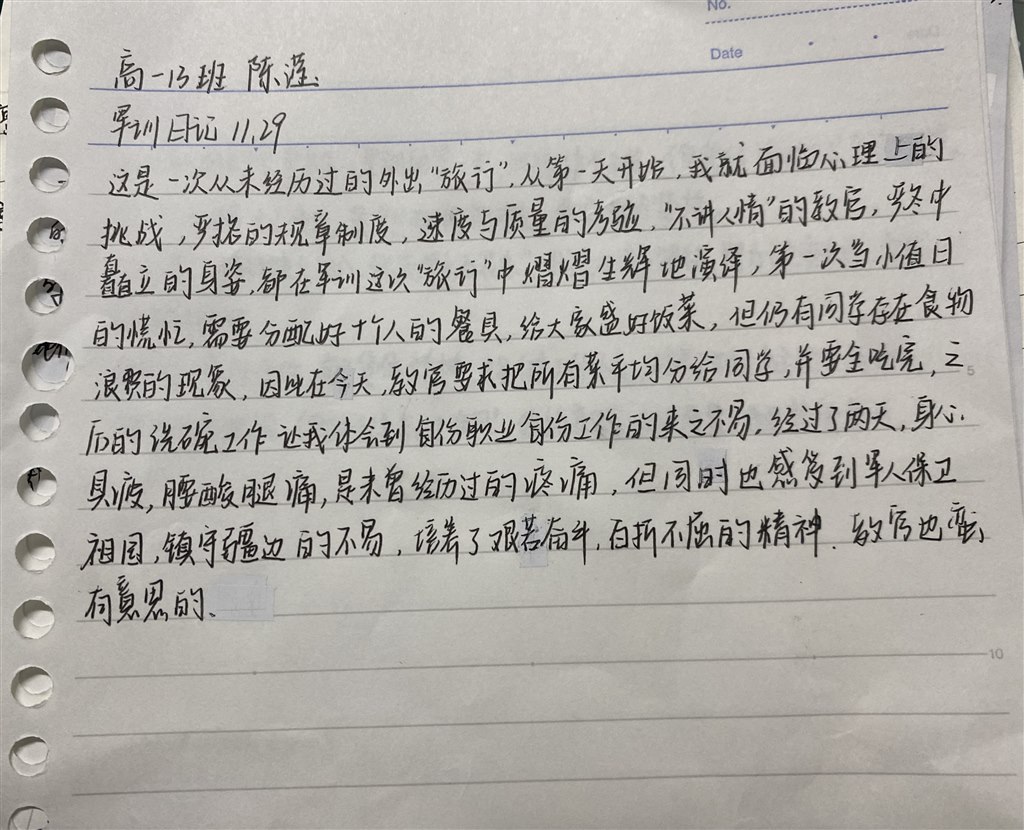 No.
Date
高一13班 陈滢
军训日记 11.29
这是一次从未经历过的外出“旅行”，从第一天开始，我就面临心理上的
挑战，严格的规章制度，速度与质量的考验，“不讲人情”的教官，寒冬中
矗立的身姿，都在军训这次“旅行”中熠熠生辉地演绎，第一次当小值日
的慌忙，需要分配好十个人的餐具，给大家盛好饭菜，但仍有同学存在食物
浪费的现象，因此在今天，教官要求把所有菜平均分给同学，并要全吃完，之
5
后的洗碗工作让我体会到每份职业每份工作的来之不易，经过了两天，身心
具疲，腰酸腿痛，是未曾经历过的疼痛，但同时也感受到军人保卫
祖国，镇守疆边的不易，培养了艰苦奋斗，百折不屈的精神．教官也蛮
有意思的、
10